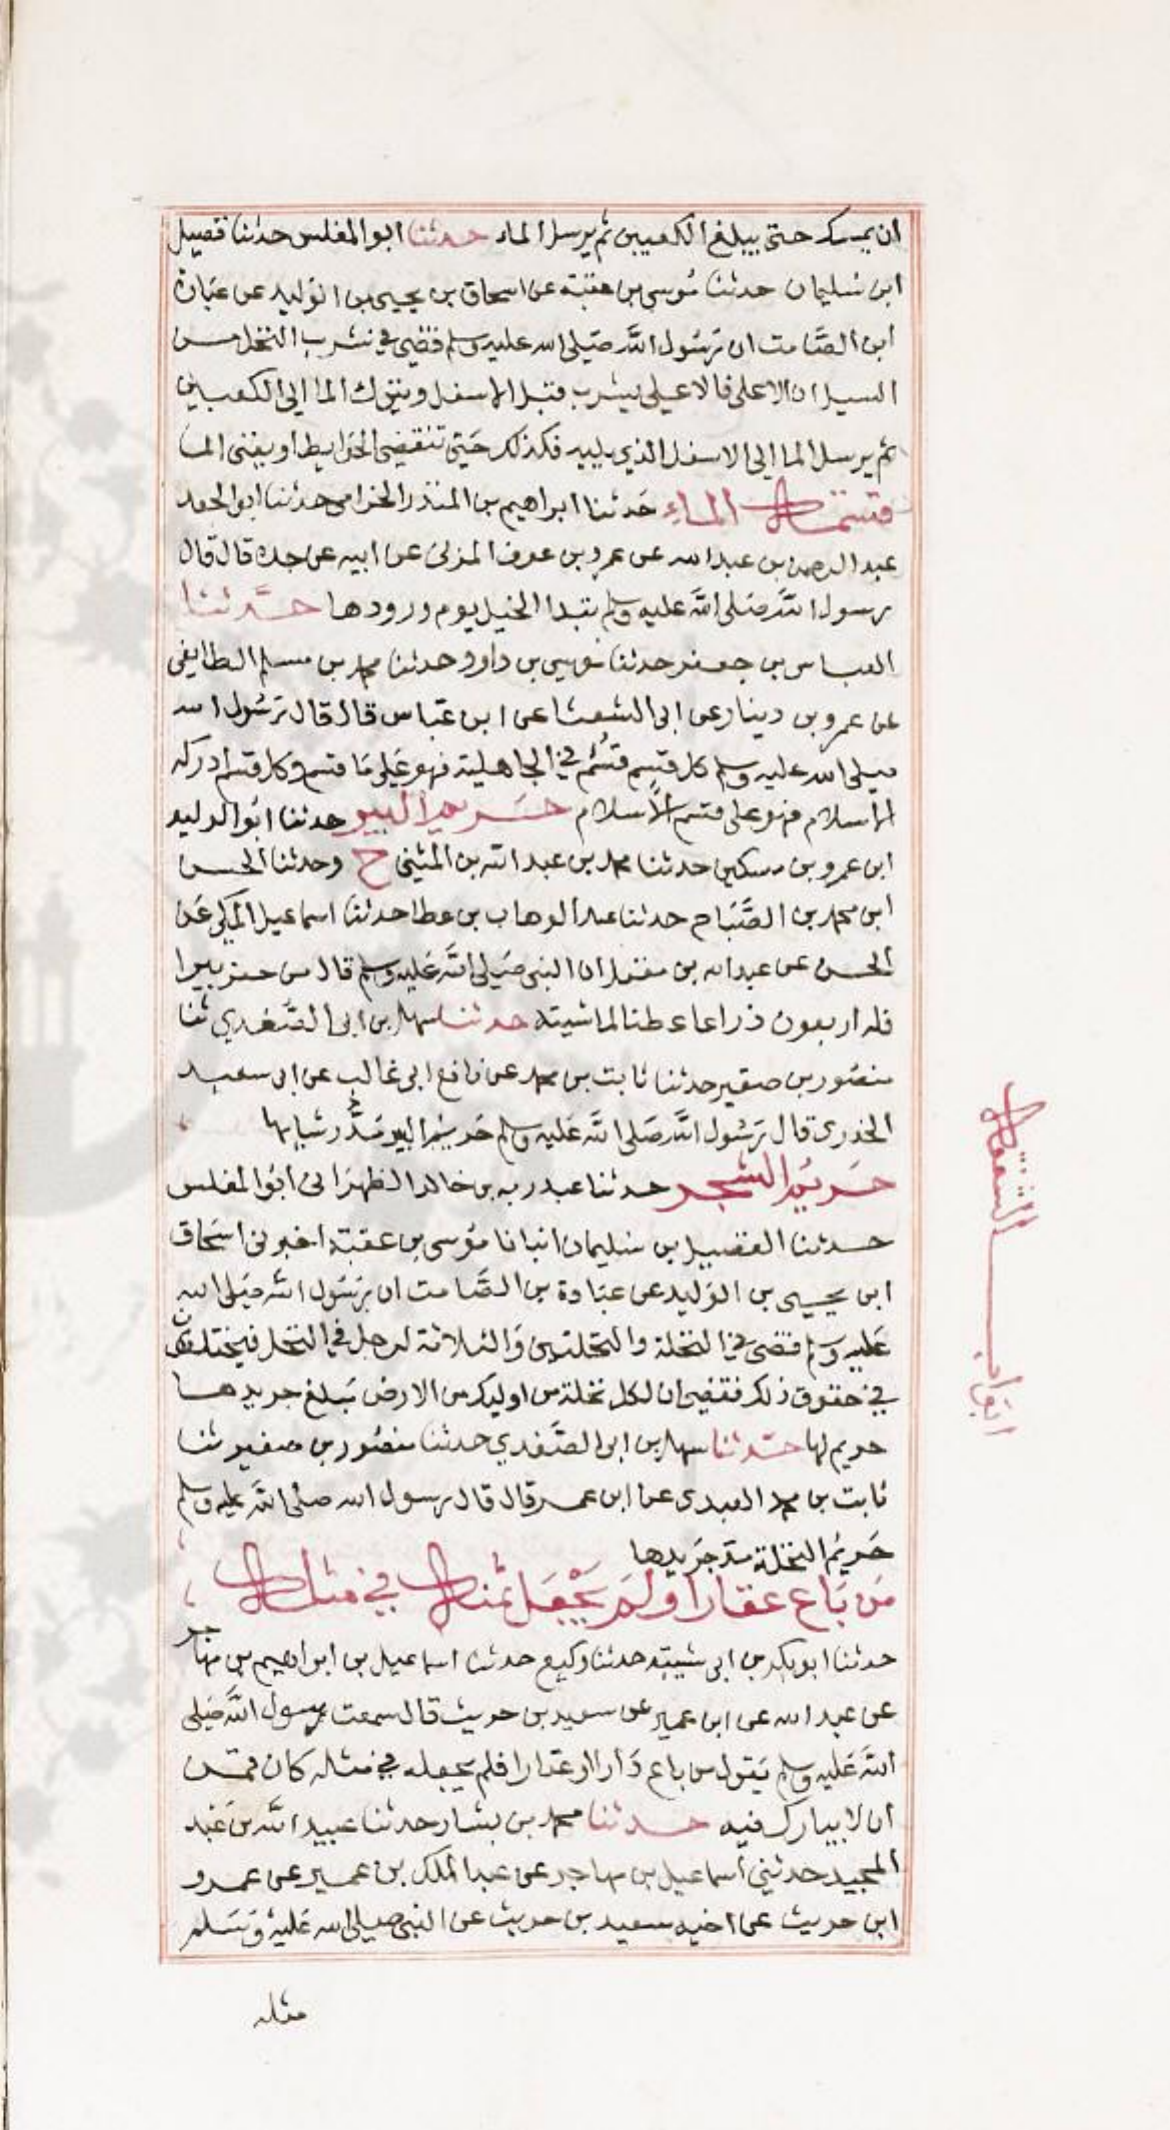 ان يمسك حتى يبلغ الكعبين ثم يرسل الماء حدثنا ابو المغلس حدثنا فضيل
ابن سليمان حدثنا موسى بن عقبة عن اسحاق بن يحيى بن الوليد عن عبادة
ابن الصامت ان رسول الله صلى الله عليه وسلم قضى في شرب النخل من
السيل ان الاعلى فالاعلى يشرب قبل الاسفل ويترك الما الى الكعبين
ثم يرسل الما الى الاسفل الذي يليه فكذلك حتى تنقضي الحوايط او يفنى الما
قسمة الماء حدثنا ابراهيم بن المنذر الحزامى حدثنا ابو الجعد
عبد الرحمن بن عبد الله عن عمرو بن عوف المزنى عن ابيه عن جده قال قال
رسول الله صلى الله عليه وسلم تبدا الخيل يوم ورودها حدثنا
العباس بن جعفر حدثنا موسى بن داود حدثنا محمد بن مسلم الطايفى
عن عمرو بن دينار عن ابى الشعثا عن ابن عباس قال قال رسول الله
صلى الله عليه وسلم كل قسم قسم في الجاهلية فهو على ما قسم وكل قسم ادركه
الاسلام فهو على قسم الاسلام حريم البير حدثنا ابو الوليد
ابن عمرو بن سكين حدثنا محمد بن عبد الله بن المثنى ح وحدثنا الحسن
ابن محمد بن الصباح حدثنا عبد الوهاب بن عطا حدثنا اسماعيل المكى عن
الحسن عن عبد الله بن مغفل ان النبي صلى الله عليه وسلم قال من حفر بيرا
فله اربعون ذراعا عطنا لماشيته حدثنا سهل بن ابى الصغدي ثنا
منصور بن صقير حدثنا ثابت بن محمد عن نافع ابى غالب عن ابى سعيد
الخدرى قال رسول الله صلى الله عليه وسلم حريم البير مد رشايها
حريم الشجر حدثنا عبد ربه بن خالد النميرى ابو المغلس
حدثنا الفضيل بن سليمان انبانا موسى بن عقبة اخبرنى اسحاق
ابن يحيى بن الوليد عن عبادة بن الصامت ان رسول الله صلى الله
عليه وسلم قضى في النخلة والنخلتين والثلاثة لرجل في النخل فيختلفون
في حقوق ذلك فقضى ان لكل نخلة من اوليك من الارض مبلغ جريدها
حريم لها حدثنا سهل بن ابى الصغدي حدثنا منصور بن صقير ثنا
ثابت بن محمد العبدى عن ابن عمر قال قال رسول الله صلى الله عليه وسلم
حريم النخلة مد جريدها
من باع عقارا ولم يجعل ثمنه في مثله
حدثنا ابو بكر بن ابى شيبة حدثنا وكيع حدثنا اسماعيل بن ابراهيم بن مهاجر
عن عبد الله عن ابن عمير عن سعيد بن حريث قال سمعت رسول الله صلى
الله عليه وسلم يقول من باع دارا او عقارا فلم يجعله في مثله كان قمن
ان لا يبارك فيه حدثنا محمد بن بشار حدثنا عبيد الله بن عبد
المجيد حدثني اسماعيل بن مهاجر عن عبد الملك بن عمير عن عمرو
ابن حريث عن اخيه سعيد بن حريث عن النبي صلى الله عليه وسلم
مثله
الشفعة
ابواب